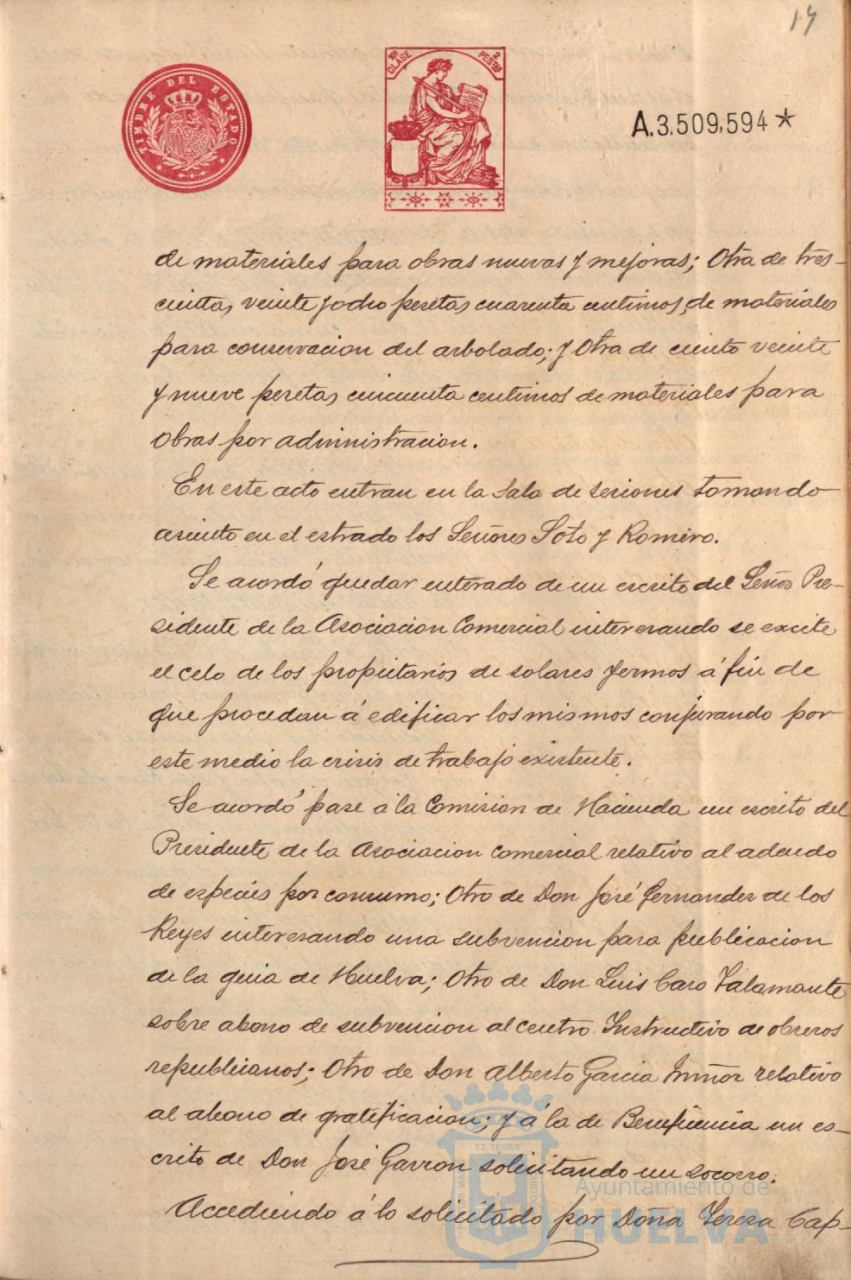 17
TIMBRE DEL ESTADO
10ª CLASE 2 PESTAS
A.3.509,594*
de materiales para obras nuevas y mejoras; Otra de tres-
cientas, veinte y ocho pesetas, cuarenta centimos, de materiales
para conservacion del arbolado; y Otra de ciento veinte
y nueve pesetas, cincuenta centimos de materiales para
obras por administracion.
En este acto entran en la Sala de sesiones tomando
asiento en el estrado los Señores Soto y Romero.
Se acordó quedar enterado de un escrito del Señor Pre-
sidente de la Asociacion Comercial interesando se excite
el celo de los propietarios de solares yermos á fin de
que procedan á edificar los mismos conjurando por
este medio la crisis de trabajo existente.
Se acordó pase á la Comision de Hacienda un escrito del
Presidente de la Asociacion Comercial relativo al adeudo
de especies por consumo; Otro de Don José Fernandez de los
Reyes interesando una subvencion para publicacion
de la guia de Huelva; Otro de Don Luis Caro Talamante
sobre abono de subvencion al centro Instructivo de obreros
republicanos; Otro de Don Alberto Garcia relativo
al abono de gratificacion; y á la de Beneficencia un es-
crito de Don José Garzon solicitando un socorro.
Accediendo á lo solicitado por Doña Teresa Cap-
ET TERRA
Ayuntamiento de
HUELVA